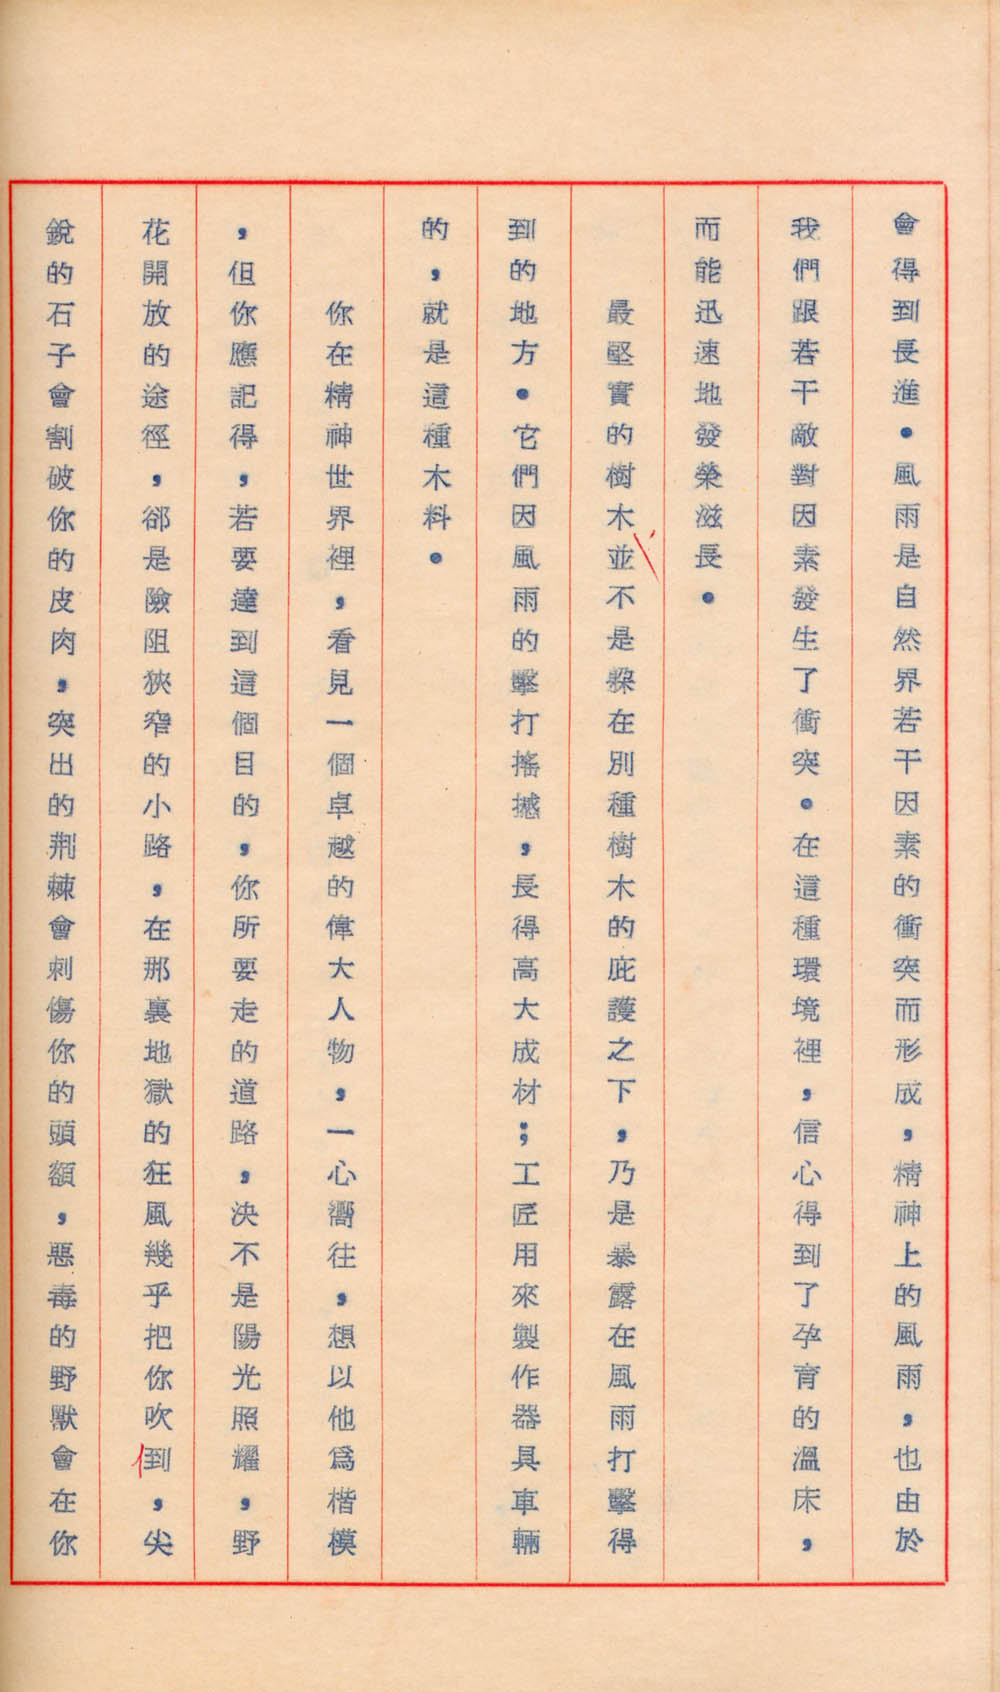 會得到長進．風雨是自然界若干因素的衝突而形成，精神上的風雨，也由於
我們跟若干敵對因素發生了衝突．在這種環境裡，信心得到了孕育的溫床，
而能迅速地發榮滋長．
最堅實的樹木並不是躱在別種樹木的庇護之下，乃是暴露在風雨打擊得
到的地方．它們因風雨的擊打搖撼，長得高大成材；工匠用來製作器具車輛
的，就是這種木料．
你在精神世界裡，看見一個卓越的偉大人物，一心嚮往，想以他爲楷模
，但你應記得，若要達到這個目的，你所要走的道路，決不是陽光照耀，野
花開放的途徑，卻是險阻狹窄的小路，在那裏地獄的狂風幾乎把你吹到，尖
銳的石子會割破你的皮肉，突出的荆棘會刺傷你的頭額，惡毒的野獸會在你